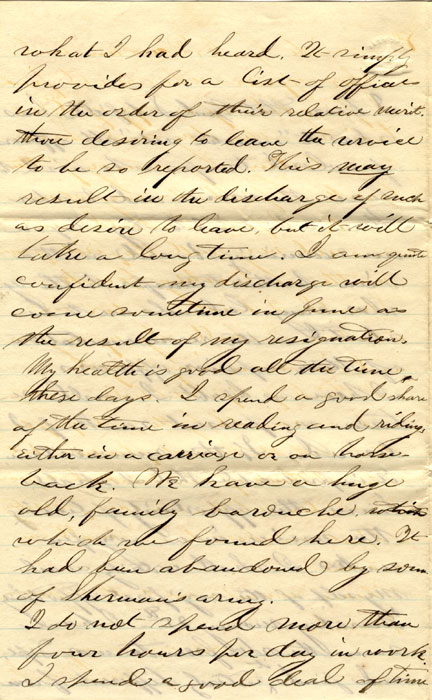 what I had heard. It simply
provides for a list of officers
in the order of their relative merit.
those desiring to leave the service
to be so reported. This may
result in the discharge of such
as desire to leave, but it will
take a long time. I am quite
confident my discharge will
come sometime in June as
the result of my resignation.
My health is good all the time
these days. I spend a good share
of the time in reading and riding,
either in a carriage or on horse-
back. We have a huge
old, family barouche
which we found here. It
had been abandoned by some
of Sherman's army.
I do not spend more than
four hours per day in work.
I spend a good deal of time